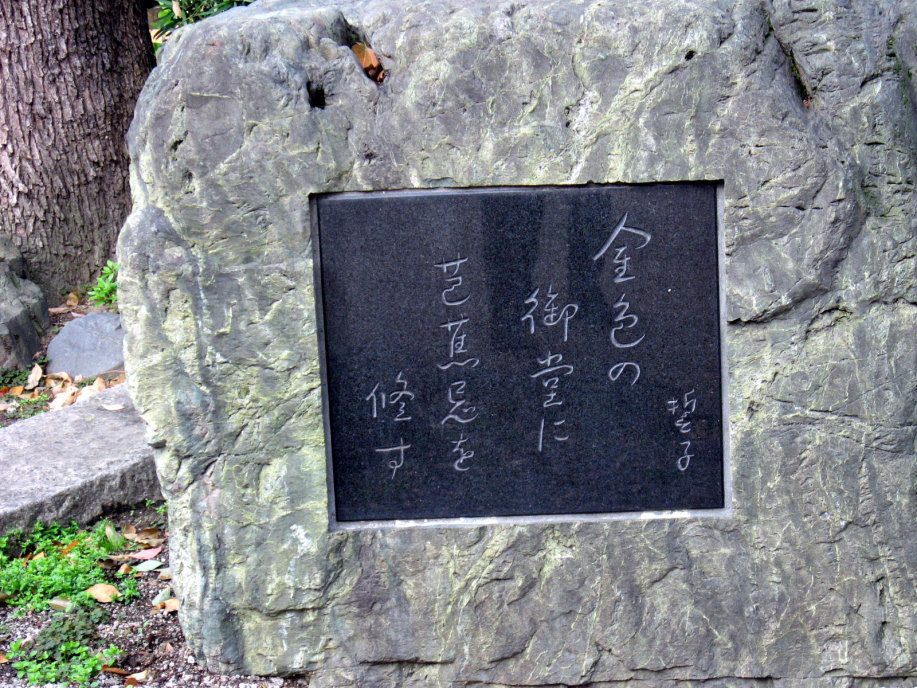 哲子
金色の
御堂に
芭蕉忌を
修す